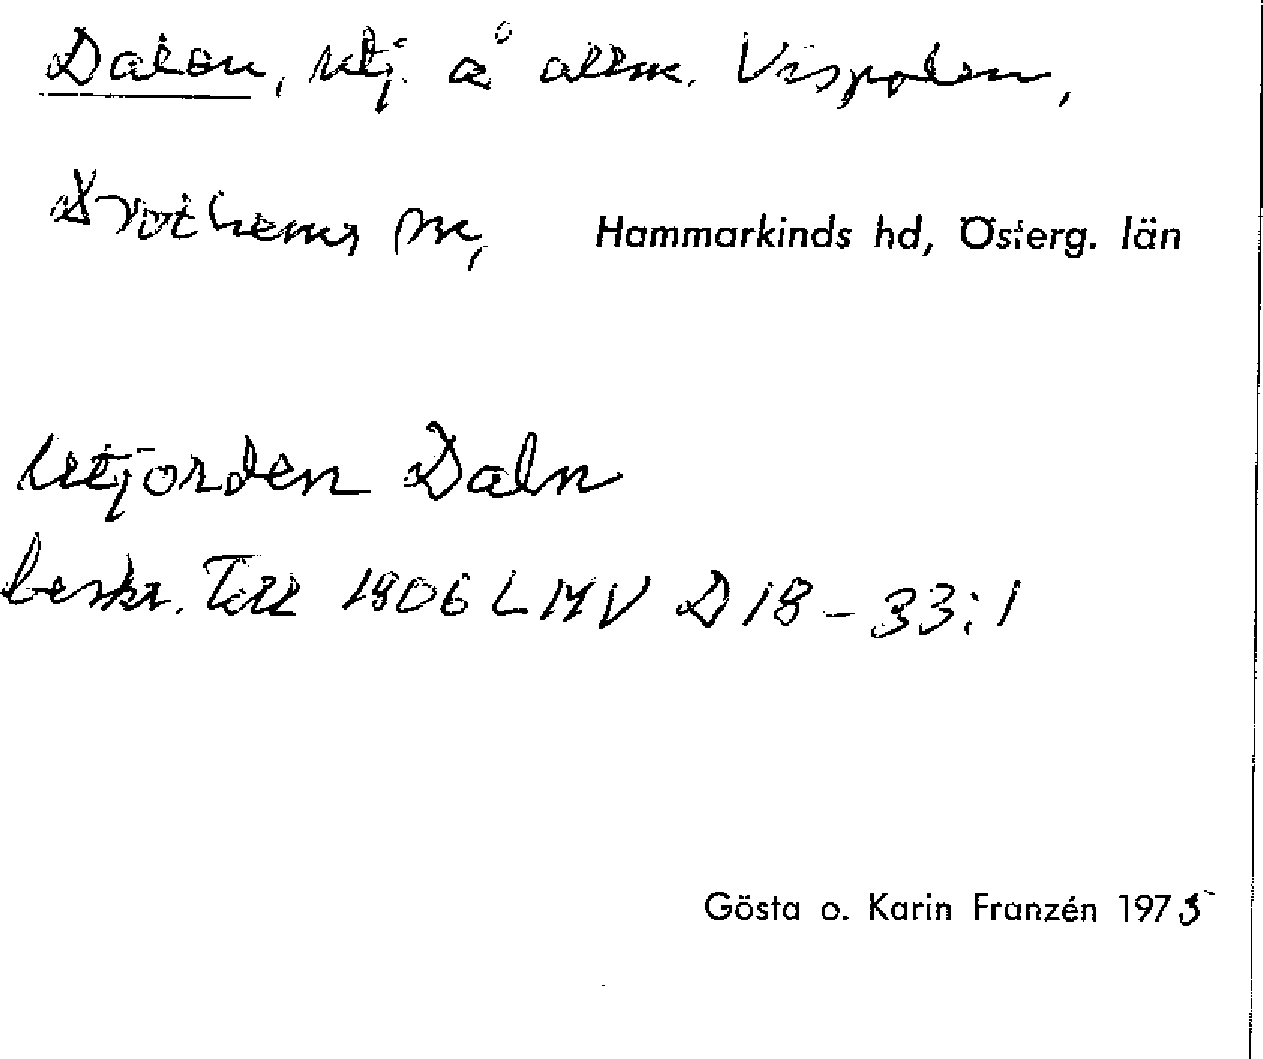 Dalen, utj. å allm. Vispolen,
Drothems sn, Hammarkinds hd, Österg. län
Utjorden Daln
beskr. Till 1806 LMV D18-33:1
Gösta o. Karin Franzén 1975